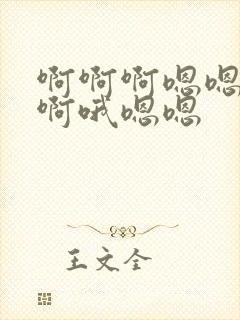 啊啊啊嗯嗯
啊哦嗯嗯
王文全